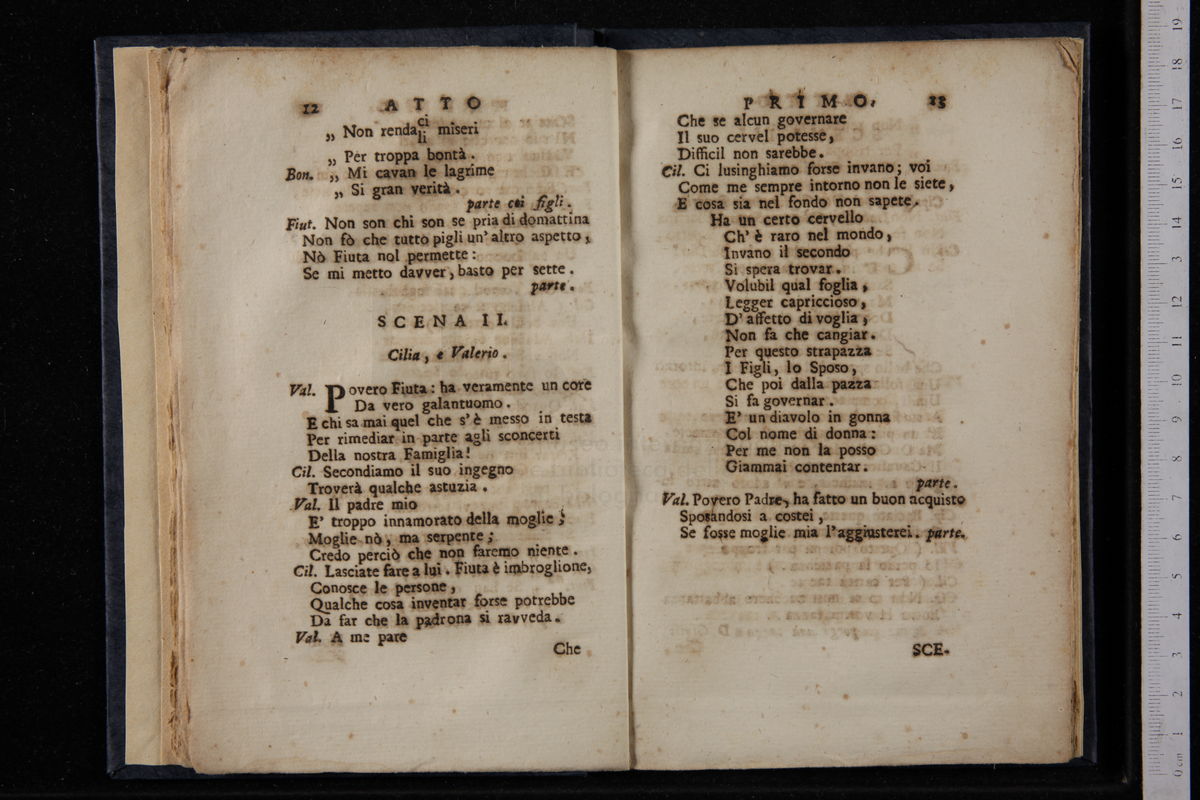 12 ATTO
„ Non renda ci li miseri
„ Per troppa bontà .
Bon. „ Mi cavan le lagrime
„ Si gran verità .
parte coi figli .
Fiut. Non son chi son se pria di domattina
Non fò che tutto pigli un' altro aspetto ,
Nò Fiuta nol permette :
Se mi metto davver , basto per sette .
parte .
SCENA II.
Cilia , e Valerio .
Val. Povero Fiuta : ha veramente un core
Da vero galantuomo .
E chi sa mai quel che s' è messo in testa
Per rimediar in parte agli sconcerti
Della nostra Famiglia !
Cil. Secondiamo il suo ingegno
Troverà qualche astuzia .
Val. Il padre mio
E' troppo innamorato della moglie ;
Moglie nò , ma serpente ;
Credo perciò che non faremo niente .
Cil. Lasciate fare a lui . Fiuta è imbroglione,
Conosce le persone ,
Qualche cosa inventar forse potrebbe
Da far che la padrona si ravveda .
Val. A me pare
Che
PRIMO. 13
Che se alcun governare
Il suo cervel potesse ,
Difficil non sarebbe .
Cil. Ci lusinghiamo forse invano ; voi
Come me sempre intorno non le siete ,
E cosa sia nel fondo non sapete .
Ha un certo cervello
Ch' è raro nel mondo ,
Invano il secondo
Si spera trovar .
Volubil qual foglia ,
Legger capriccioso ,
D' affetto di voglia ,
Non fa che cangiar .
Per questo strapazza
I Figli , lo Sposo ,
Che poi dalla pazza
Si fa governar .
E' un diavolo in gonna
Col nome di donna :
Per me non la posso
Giammai contentar .
parte .
Val. Povero Padre , ha fatto un buon acquisto
Sposandosi a costei ,
Se fosse moglie mia l'aggiusterei . parte.
SCE-
0 cm 1 2 3 4 5 6 7 8 9 10 11 12 13 14 15 16 17 18 19